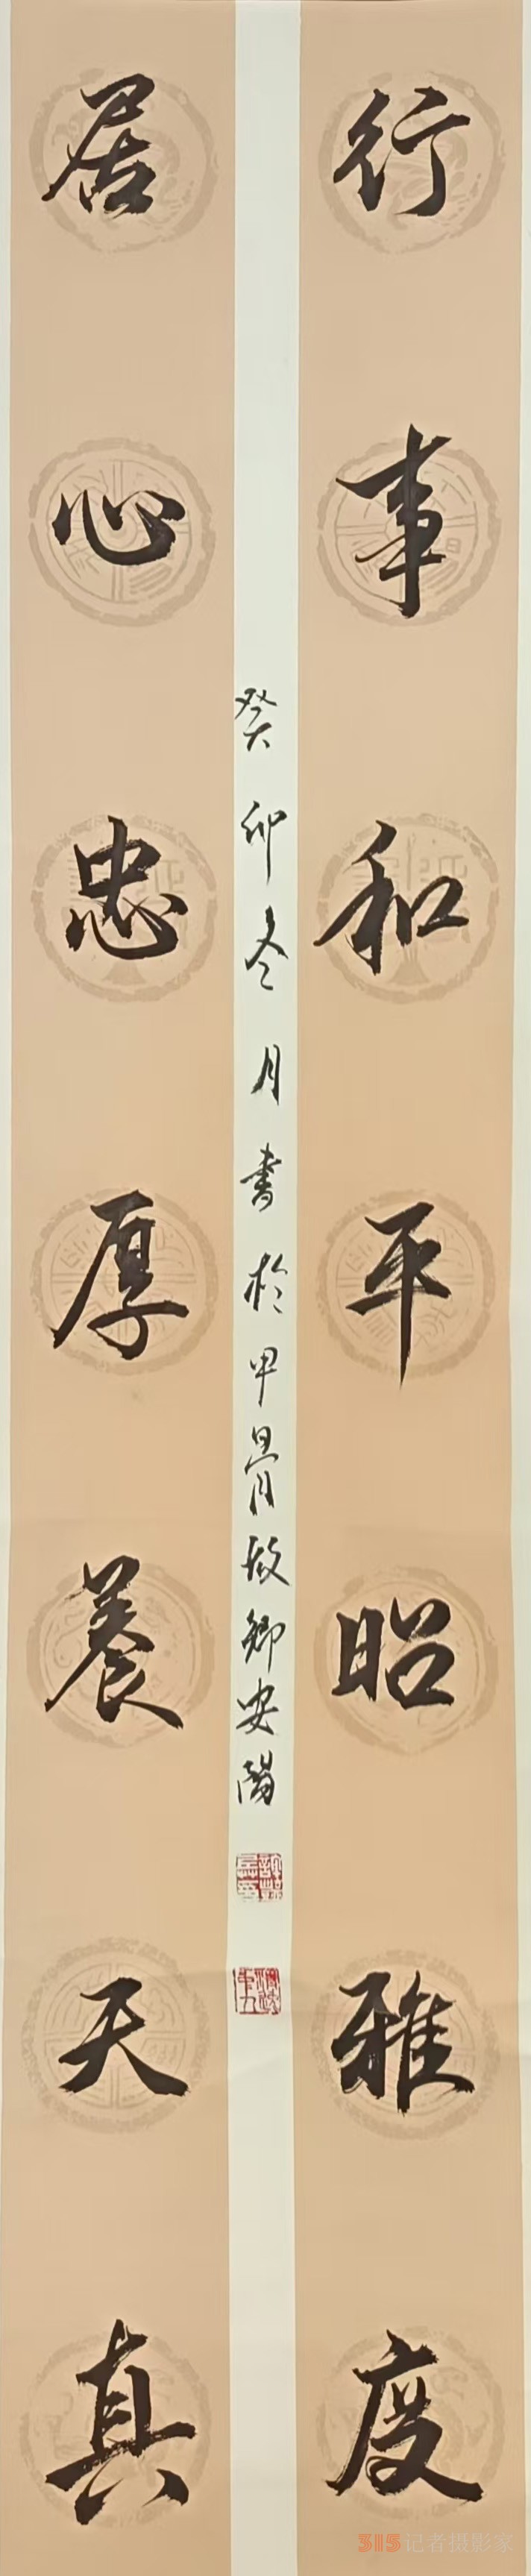 行事和平昭雅度
居心忠厚養天真
癸卯冬月書於甲骨故鄉安陽
315记者摄影家